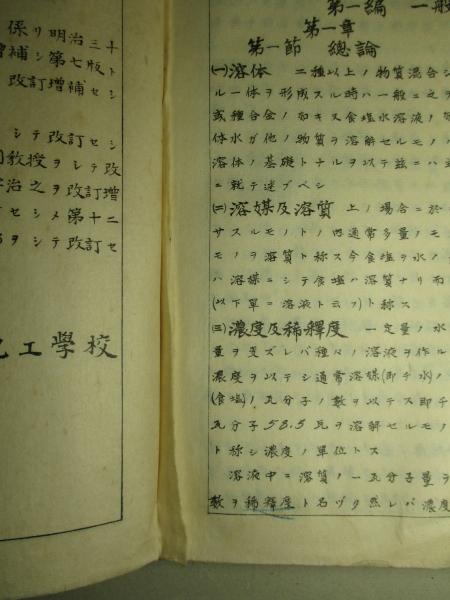 係リ明治三十
増補シ第七版ト
改訂増補セシ
シテ改訂セシ
教授ヲシテ改
治之ヲ改訂増
セシメ第十二
ヲシテ改訂セ
工學校
第一編 一般
第一章
第一節 總論
(一)溶体 二種以上ノ物質混合シ
ル一体ヲ形成スル時ハ一般ニ之ヲ
或種合金ノ如キス食塩水溶液ノ
体水ガ他ノ物質ヲ溶解セルモノハ
溶体ノ基礎トナルヲ以テ茲ニハ主
ニ就テ述ブベシ
(二)溶媒及溶質 上ノ場合ニ於
サスルモノトノ内通常多量ノモ
モノヲ溶質ト称ス今食塩ヲ水ノ
ハ溶媒ニシテ食塩ハ溶質ナリ而
(以下單ニ溶液ト云フ)ト称ス
(三)濃度及稀釋度 一定量ノ水
量ヲ変ズレバ種々ノ溶液ヲ作ル
濃度ヲ以テシ通常溶媒(即チ水)ノ
(食塩)ノ瓦分子ノ数ヲ以テス即チ
瓦分子58.5瓦ヲ溶解セルモノ
ト称シ濃度ノ單位トス
溶液中ニ溶質ノ一瓦分子量ヲ
数ヲ稀釋度ト名ヅク然レバ濃度